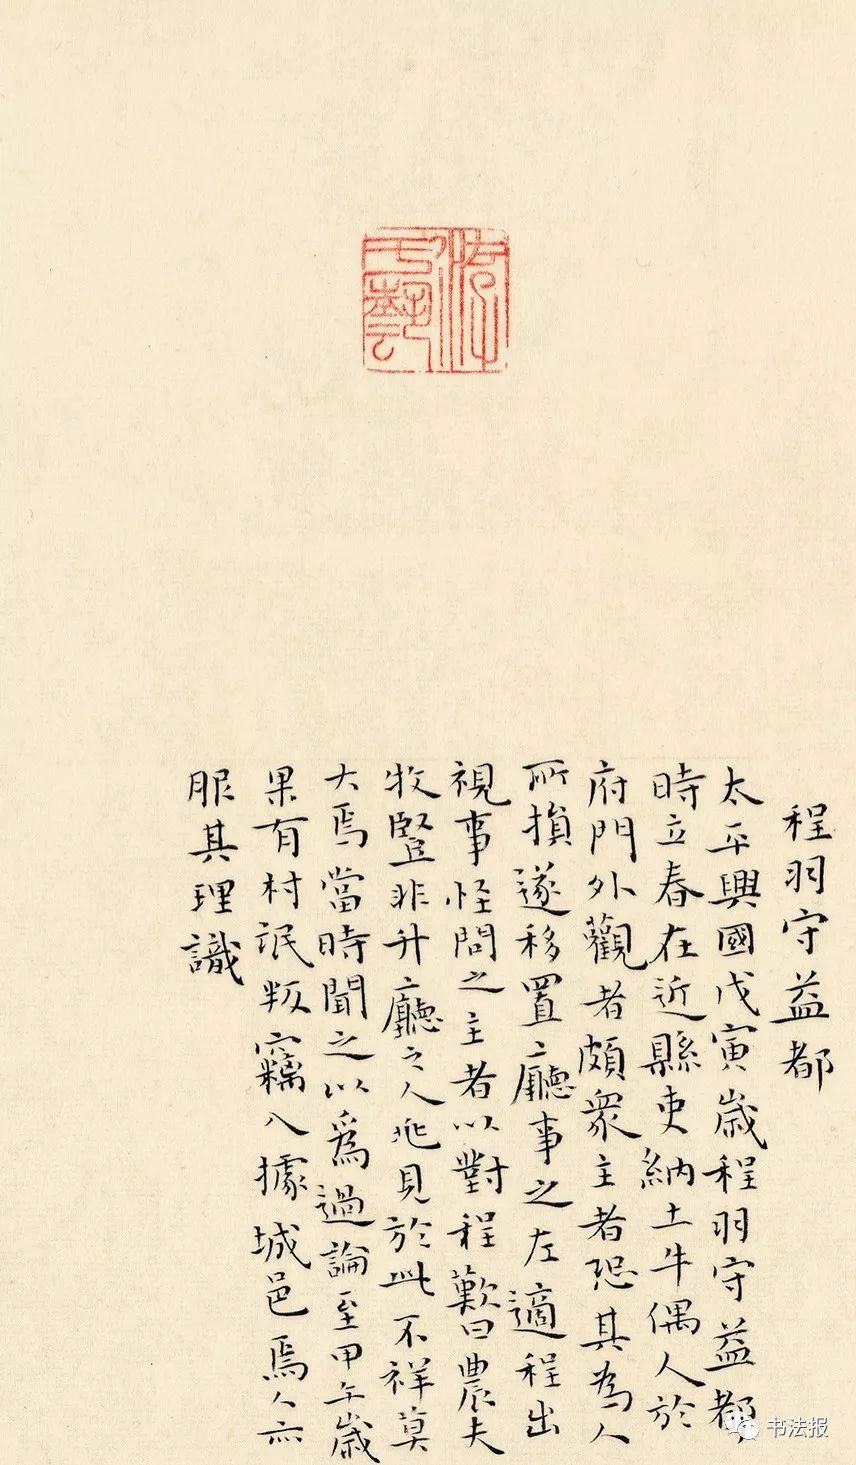 程羽守益都
太平興國戊寅歲程羽守益都
時立春在近縣吏納土牛偶人於
府門外觀者頗衆主者恐其為人
所損遂移置廳事之左適程出
視事怪問之主者以對程歎曰農夫
牧豎非升廳之人兆見於此不祥莫
大焉當時聞之以爲過論至甲午歲
果有村氓叛竊入據城邑焉人亦
服其理識
书法报